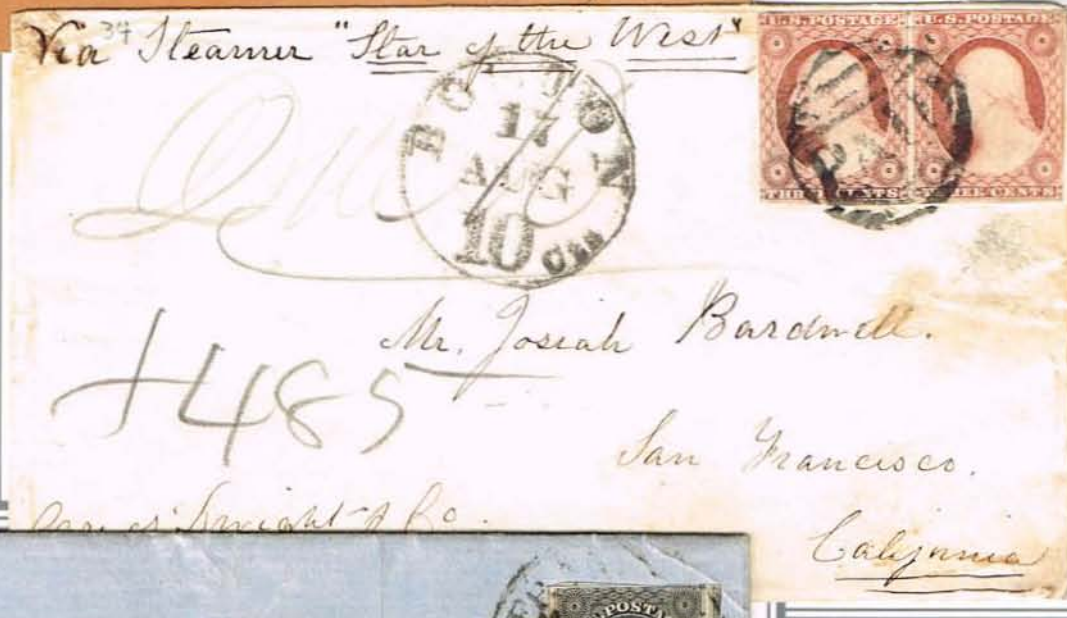 Via Steamer "Star of the West"
34
U.S. POSTAGE U.S. POSTAGE
THREE CENTS THREE CENTS
BOSTON
17
AUG
10 Cts
PAID
Mr. Josiah Bardwell.
485
San Francisco.
Care of Knight & Co.
California
POSTA